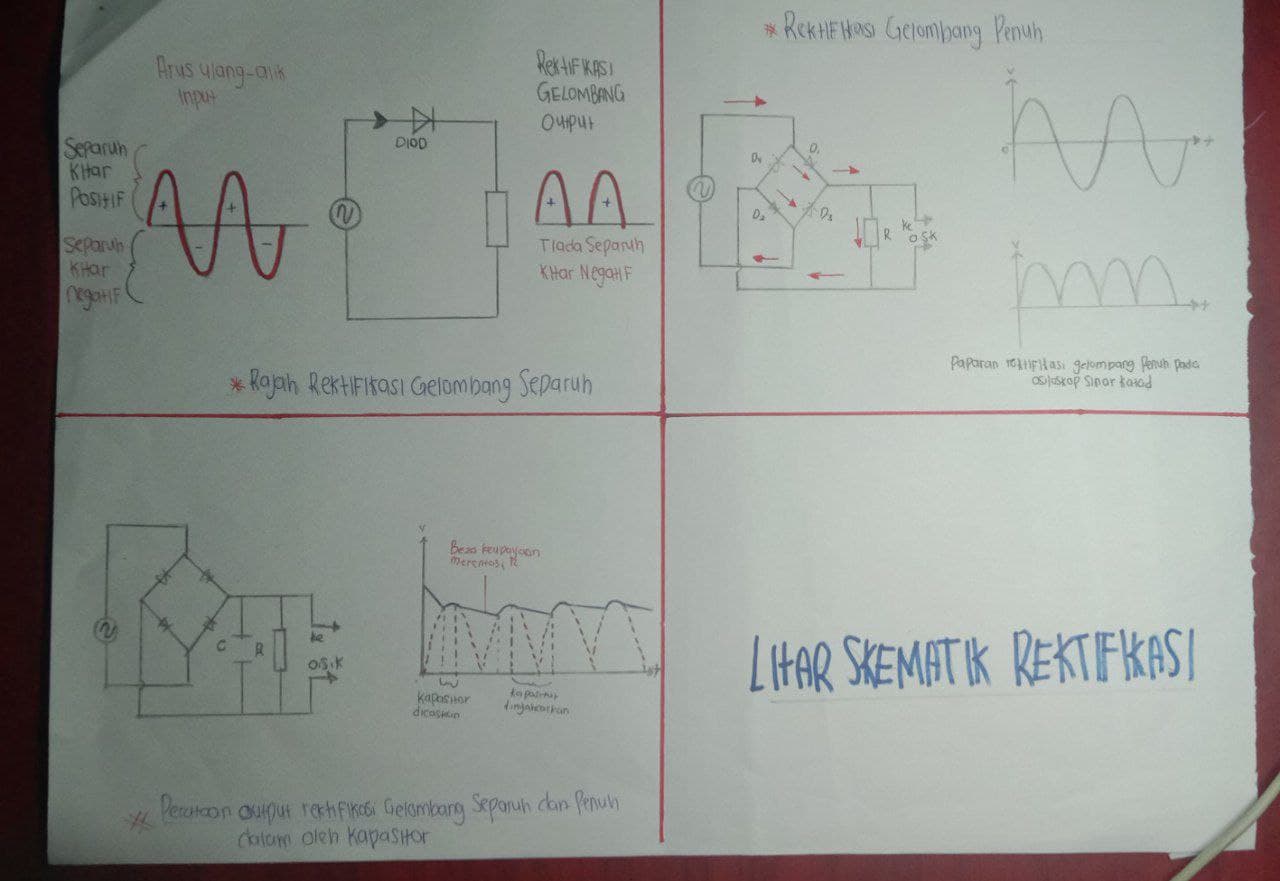 Arus ulang-alik
Input
Separuh
Kitar
Positif
+
+
-
-
Separuh
Kitar
negatif
DIOD
REKTIFIKASI
GELOMBANG
Output
+
+
Tiada Separuh
Kitar Negatif
* Rajah Rektifikasi Gelombang Separuh
* Rektifikasi Gelombang Penuh
D4
D1
D2
D3
R
ke
O.S.K
V
0
t
V
t
Paparan rektifikasi gelombang Penuh pada
osiloskop Sinar Katod
C
R
ke
O.S.K
V
Beza keupayaan
merentasi R
t
Kapasitor
dicaskan
Kapasitor
dinyahcaskan
* Perataan output rektifikasi Gelombang Separuh dan Penuh
dalam oleh Kapasitor
LITAR SKEMATIK REKTIFIKASI